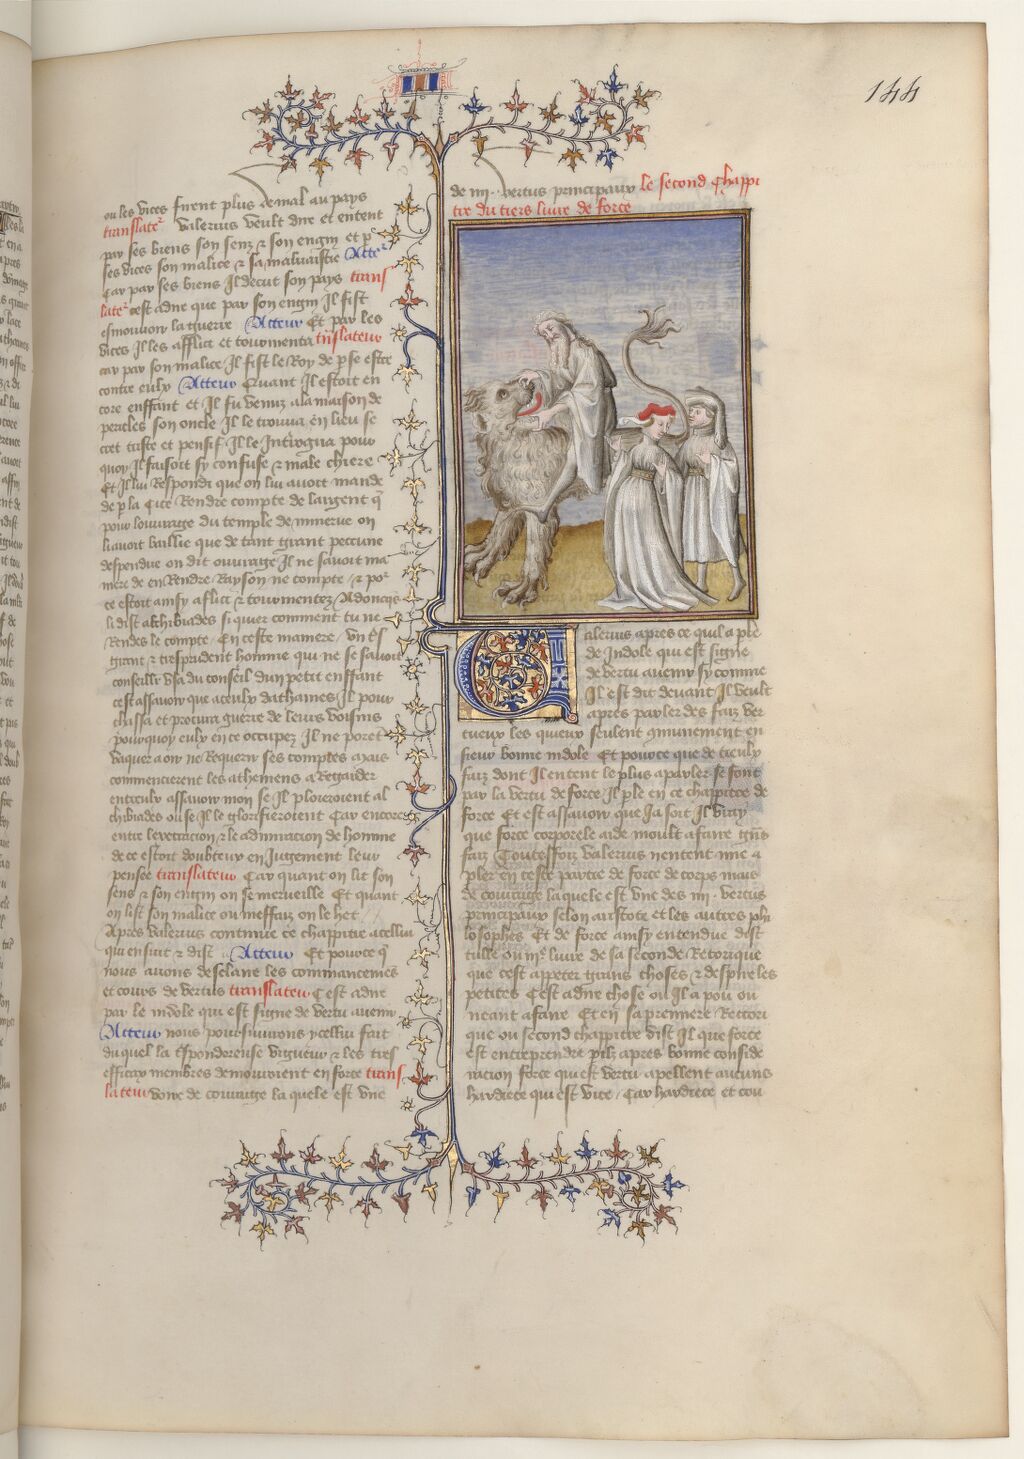 144
ou les vices firent plus de mal au pays
translateˀ Valerius veult dire et entent
par ses biens son sens ⁊ son engin et pˀ
ses vices son malice ⁊ sa mauvaistie Acteˀ
Car par ses biens Il decut son pays trans
lateˀ cest adire que par son engin Il fist
esmouvoir la guerre Acteur Et par les
vices Il les afflict et tourmenta trslateur
car par son malice Il fist le Roy de pse estre
contre eulx Acteur Quant Il estoit en
core enffant et Il fu venuz a la maison de
pericles son oncle Il le trouva en lieu se
cret triste et pensif Il le Interogua pour
quoy Il faisoit sy confuse ⁊ male chiere
Et Il lui Respondi que on lui avoit mande
de p la Cite Rendre compte de largent q̄
pour louvrage du temple de minerve on
li avoit baillie que de tant grant peccune
despendue on dit ouvrage Il ne savoit ma
niere de en Rendre Rayson ne compte ⁊ poˀ
ce estoit ainsy aflict ⁊ tourmentez Adoncqs
li dist alchibiades si quier comment tu ne
Rendes le compte En ceste maniere vn tˢ
grant ⁊ tresprudent homme qui ne se savoit
conseillir vsa du conseil dun petit enffant
cest assavoir que aceulx dathaines Il pour
chassa et procura guerre de leurs voisins
pourquoy eulx en ce occupez Il ne poret
vaquer a oir ne Requerir ses comptes mais
commencierent les atheniens a Regarder
entreulx assavoir mon se Il ploreroient al
chibiades ou se Il le glorifieroient Car encores
entre lexecracion ⁊ le admiracion de homme
de ce estoit doubteux en Jugement leur
pensee translateur Car quant on lit son
sens ⁊ son engin on se merveille Et quant
on list son malice ou meffaiz on le het
Apres Valerius continue ce chappitre a celluy
qui ensuit ⁊ dist Acteur Et pource q̄
nous avons desclaire les commancemes
et cours de vertus translateur Cest adire
par le indole qui est signe de vertu avenir
Acteur nous poursuivrons ycellui fait
duquel la Esponderense vigueur ⁊ les tres
efficax membres demourent en force trans
lateur voire de courage la quele est vne
de iiii· vertus principaux le second Chappi
tre du tiers livre de force
Valerius apres ce quil a ple
de Indole qui est signe
de vertu avenir sy comme
Il est dit devant Il veult
apres parler des faiz ver
tueux les quieux seulent conmunement en
sievir bonne indole Et pource que de tieulx
faiz dont Il entent le plus a parler se font
par la vertu de force Il ple en ce chappitre de
force Et est assavoir que Ja soit Il vray
que force corporele aide moult a faire grns
faiz Touteffoiz Valerius nentent mie a
pler en ceste partie de force de corps mais
de courage laquele est vne des iiii· vertus
principaux selon aristote et les autres phi
losophes Et de force ainsy entendue dist
tulle ou mˢ livre de sa seconde Retorique
que cest appeter grans choses ⁊ despire les
petites Cest adire chose ou Il a pou ou
neant a faire Et en sa premiere Rectori
que ou second chappitre dist Il que force
est entreprendre pilz apres bonne conside
racion force qui est vertu apellent aucuns
hardiece qui est vice Car hardiece et cou